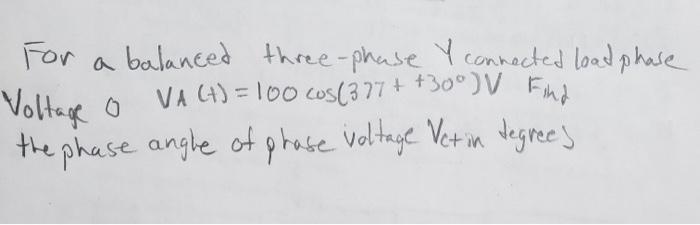 For a balanced three-phase Y connected load phase
Voltage o VA (t) = 100 cos(377t +30°)V Find
the phase angle of phase voltage Vct in degrees